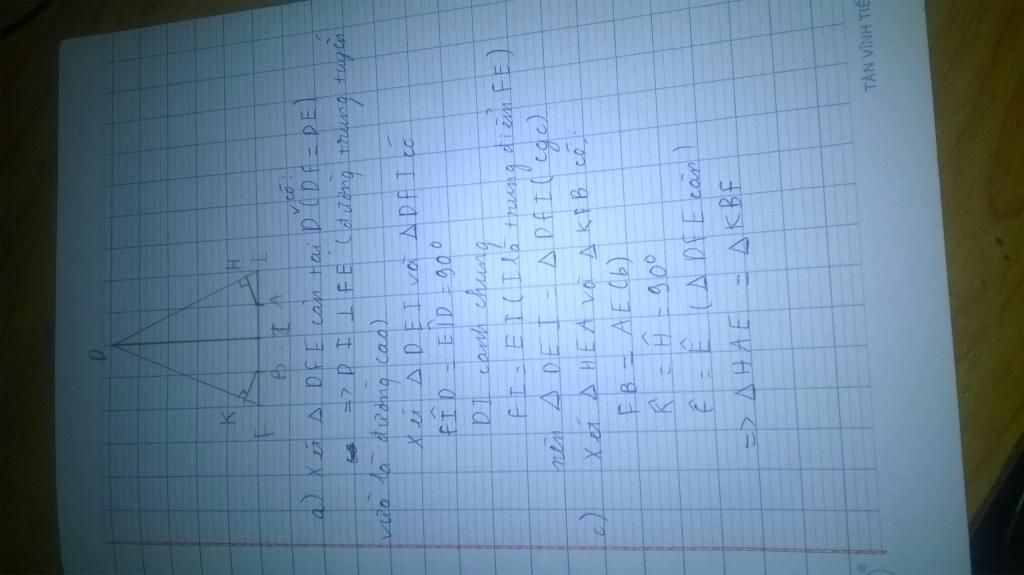 D
K
H
F B I A E
a) Xét △ DFE cân tại D có: (DF = DE)
=> DI ⊥ FE (đường trung tuyến
vừa là đường cao)
Xét △ DEI và △ DFI có
FÎD = EÎD = 90°
DI cạnh chung
FI = EI (I là trung điểm FE)
nên △ DEI = △ DFI (cgc)
c) Xét △ HEA và △ KFB có:
FB = AE (b)
K̂ = Ĥ = 90°
F̂ = Ê (△ DFE cân)
=> △ HAE = △ KBF
TÂN VĨNH TIẾ